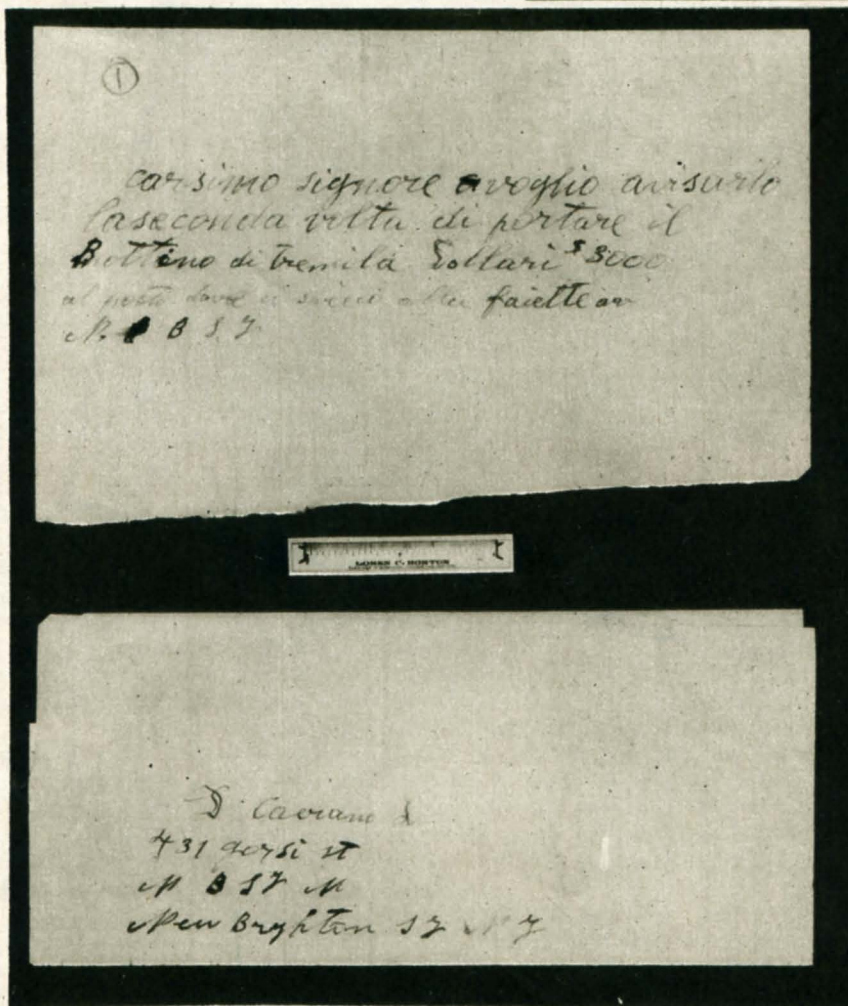 1
carsimo signore avoglio avisarlo
laseconda volta di portare il
Bottino di tremila Dollari $ 3000
al posto dove si alla faiette av
N. B S J
LOREN C. HORTON
D
431 gersi st
N B S J N
New Bryhton S J N J